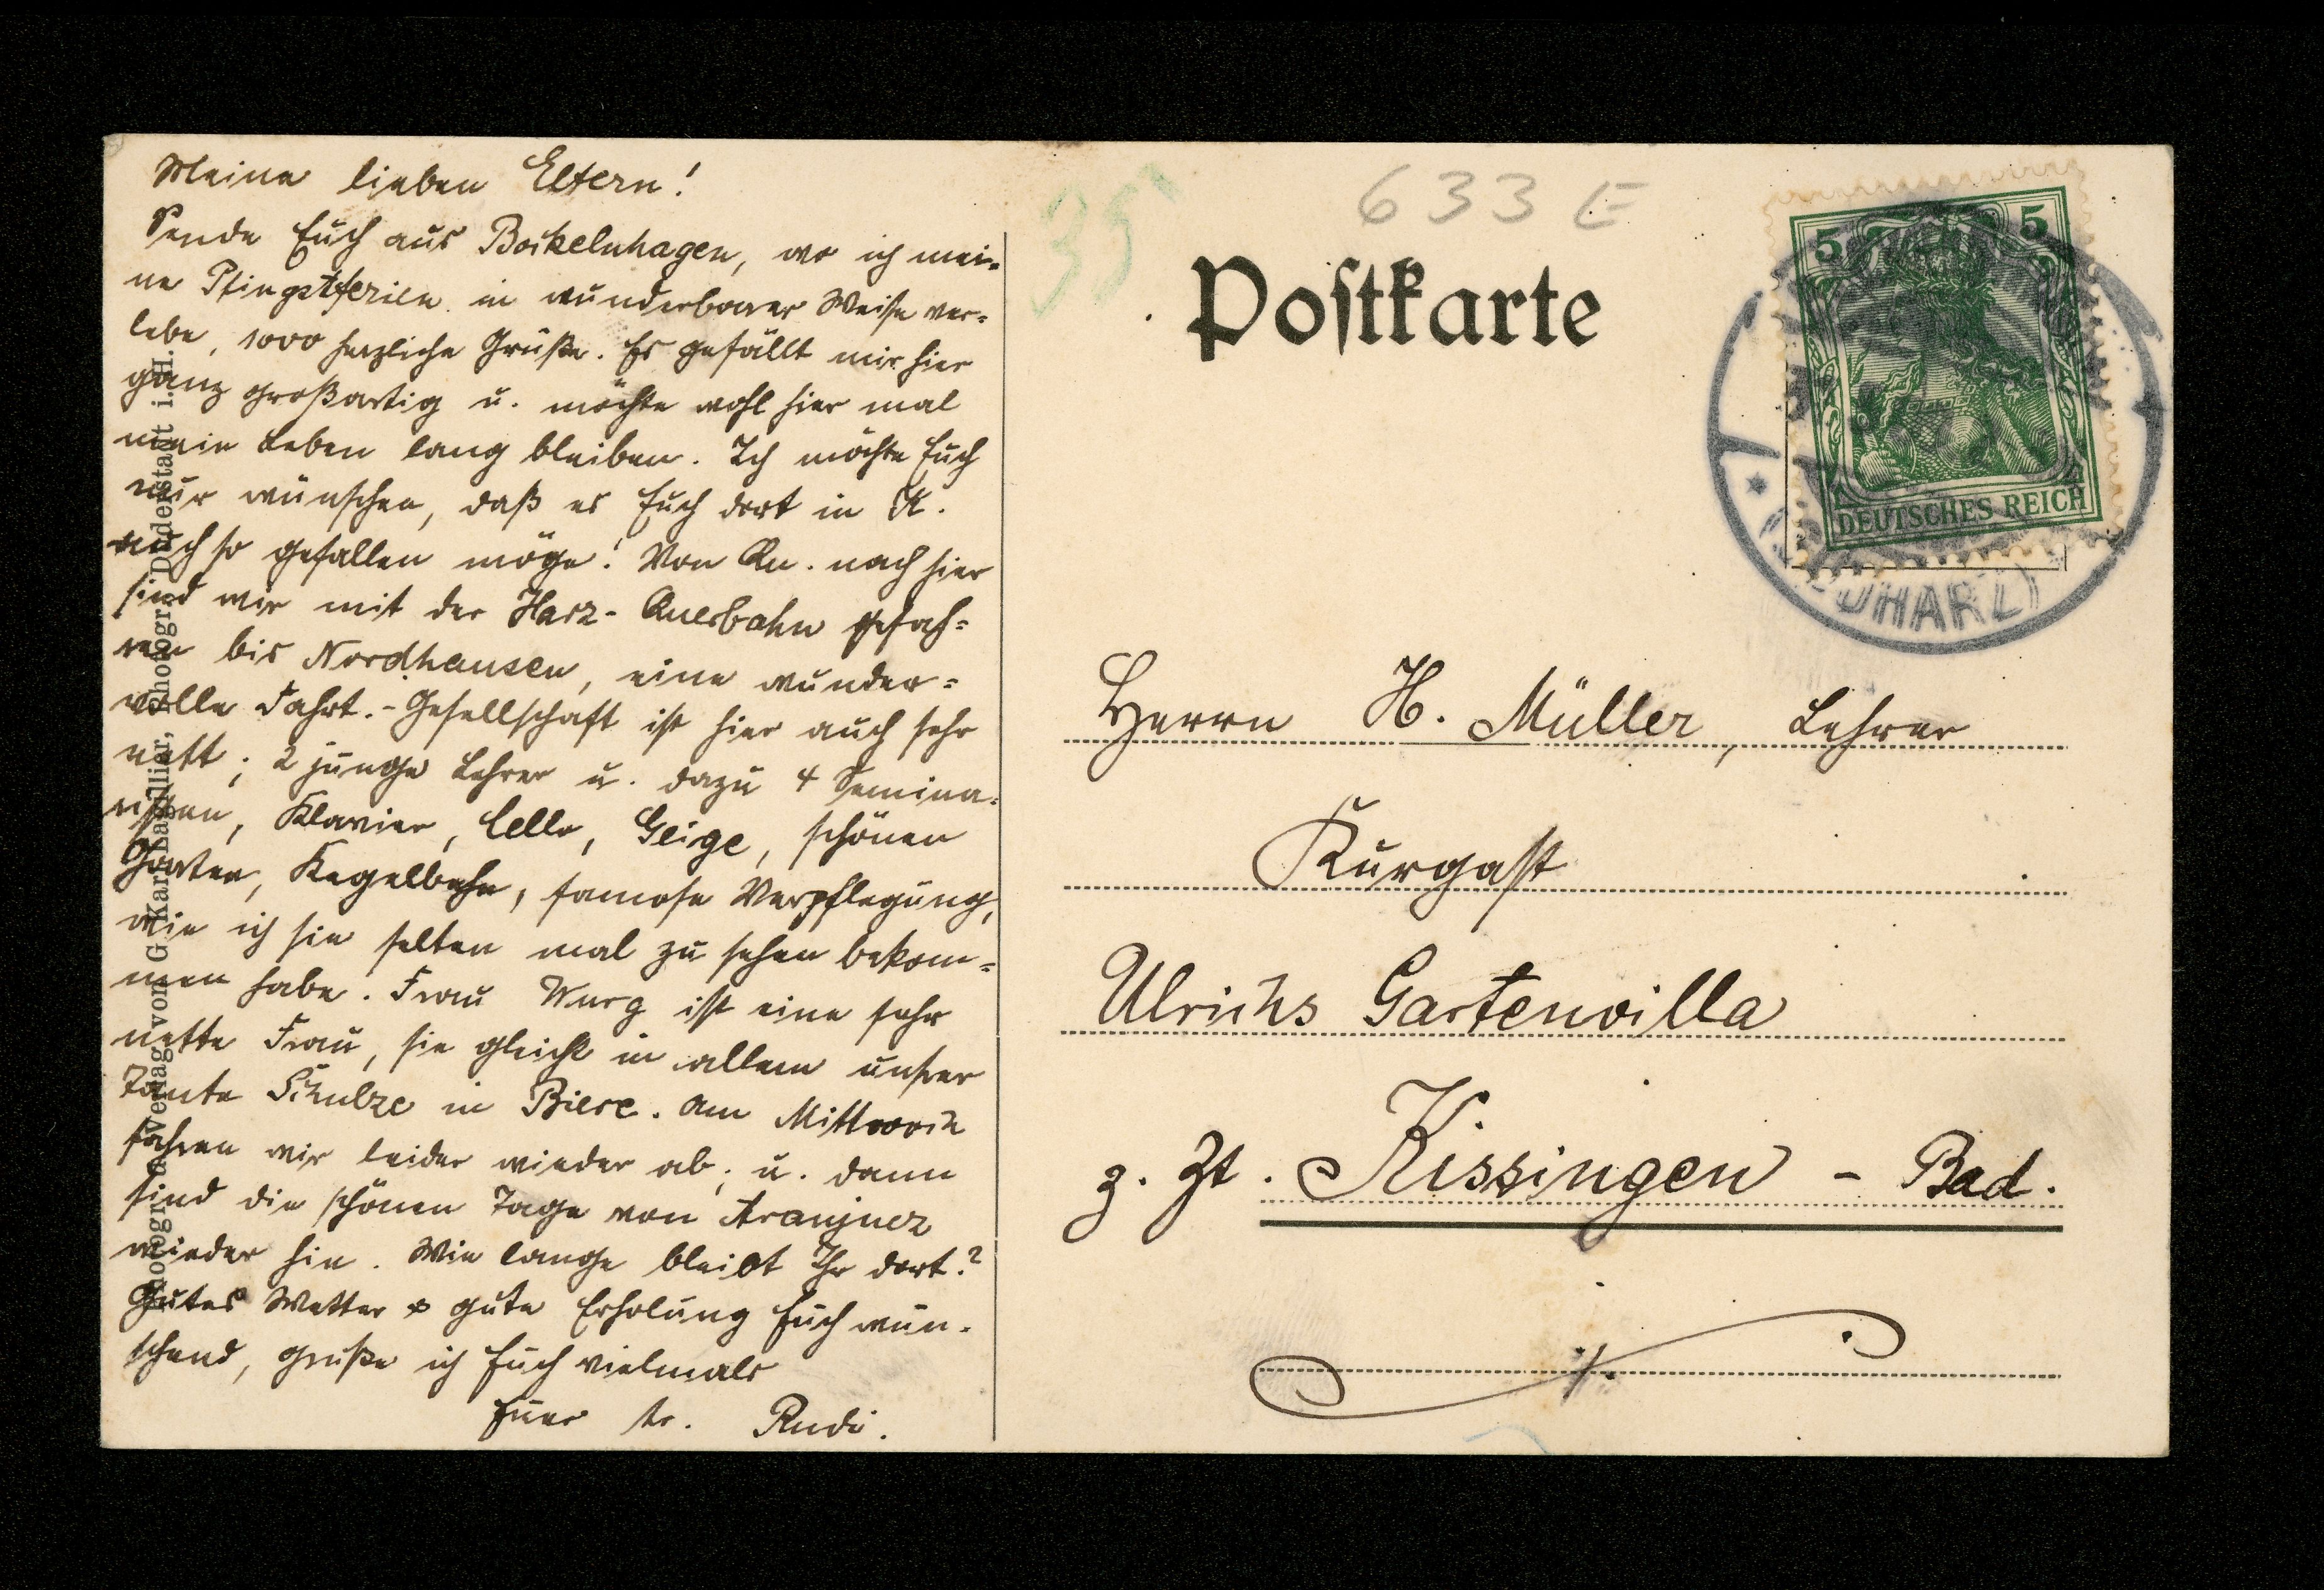 Meine lieben Eltern!
Sende Euch aus Bockelnhagen, wo ich mei-
ne Pfingstferien in wunderbarer Weise ver-
lebe, 1000 herzliche Grüße. Es gefällt mir hier
ganz großartig u. möchte wohl hier mal
mein Leben lang bleiben. Ich möchte Euch
nur wünschen, daß es Euch dort in K.
auch so gefallen möge! Von Qu. nach hier
sind wir mit der Harz-Querbahn gefah-
ren bis Nordhausen, eine wunder-
volle Fahrt. - Gesellschaft ist hier auch sehr
nett; 2 junge Lehrer u. dazu 4 Semina-
risten, Klavier, Cello, Geige, schönen
Garten, Kegelbahn, famose Verpflegung,
wie ich sie selten mal zu sehen bekom-
men habe. Frau Wurg ist eine sehr
nette Frau, sie gleicht in allem unsrer
Tante Schulze in Biere. Am Mittwoch
fahren wir leider wieder ab; u. dann
sind die schönen Tage von Aranjuez
wieder hin. Wie lange bleibt Ihr dort?
Gutes Wetter & gute Erholung Euch wün-
schend, grüße ich Euch vielmals
Euer tr. Rudi.
Photogr. u. Verlag von G. Karl Lagillier, Photogr. Duderstadt i. H.
35
633 E
Postkarte
5 5
DEUTSCHES REICH
HARZ)
Herrn H. Müller, Lehrer
Kurgast
Ulrichs Gartenvilla
z. Zt. Kissingen - Bad.